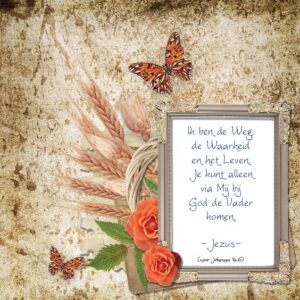 Ik ben de Weg,
de Waarheid
en het Leven.
Je kunt alleen
via Mij bij
God de Vader
komen.
- Jezus -
Johannes